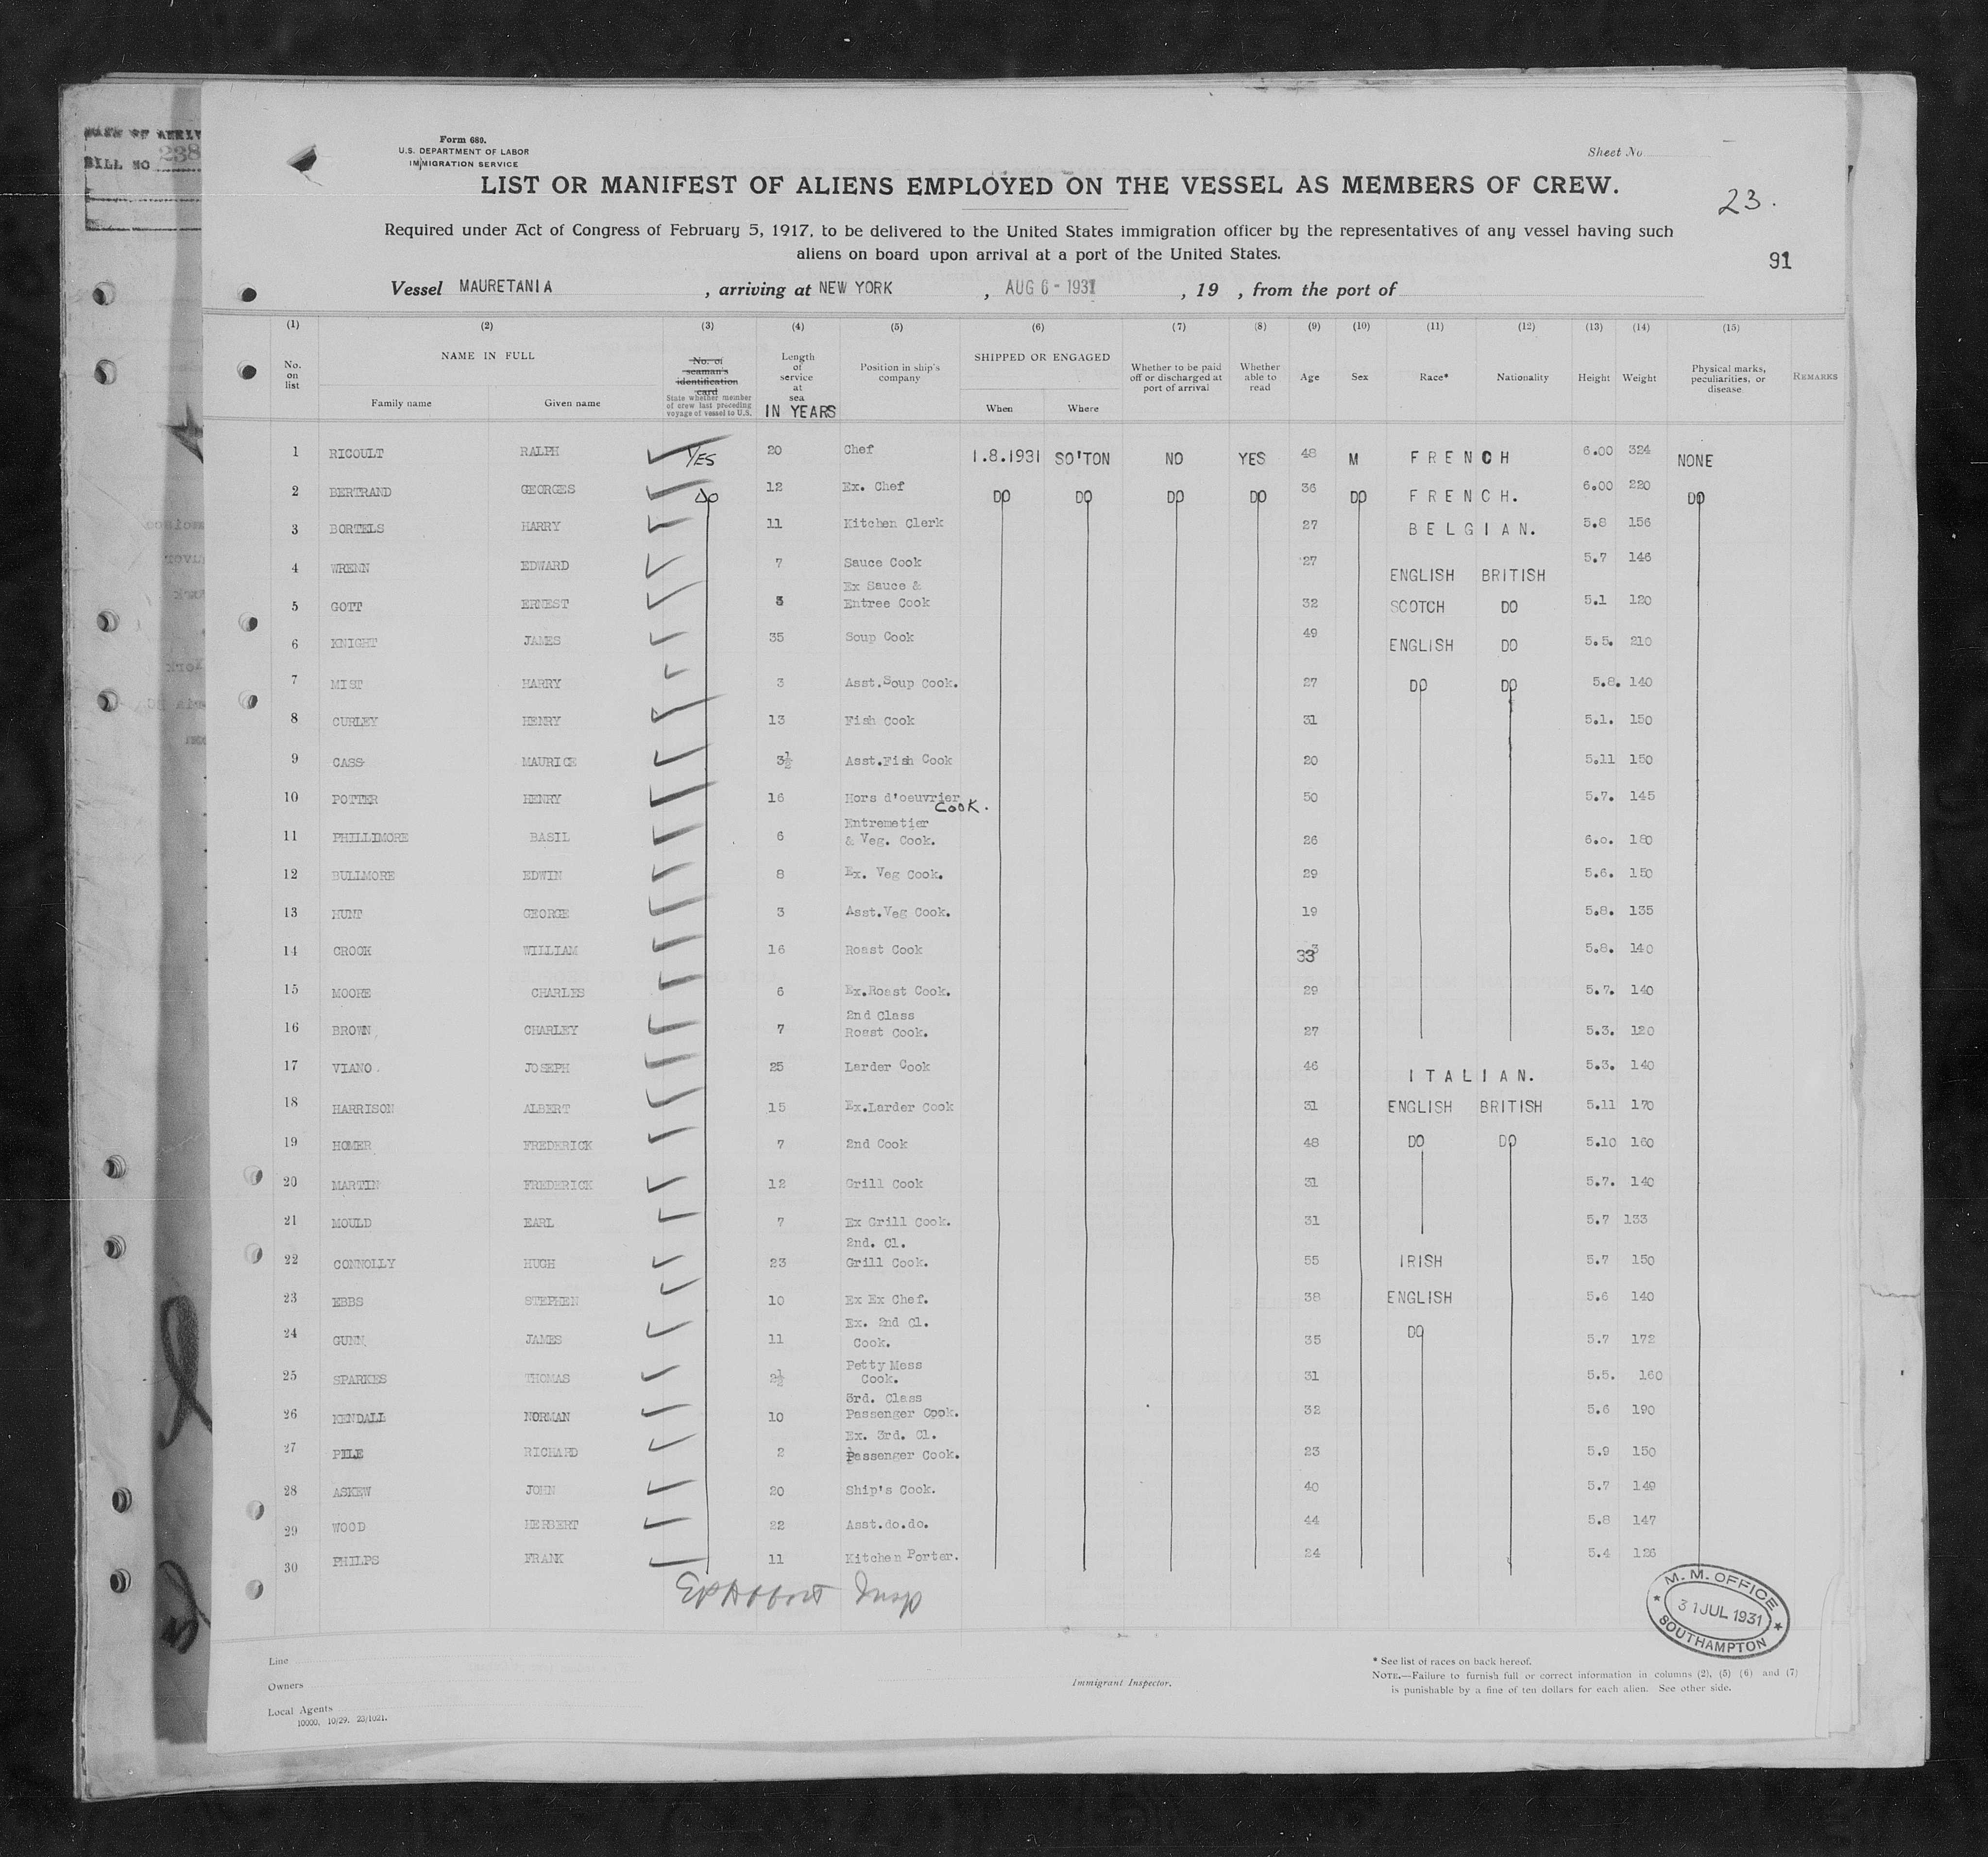 Form 680.
U.S. DEPARTMENT OF LABOR
IMMIGRATION SERVICE
BILL NO 238
Sheet No
LIST OR MANIFEST OF ALIENS EMPLOYED ON THE VESSEL AS MEMBERS OF CREW.
23.
Required under Act of Congress of February 5, 1917, to be delivered to the United States immigration officer by the representatives of any vessel having such
aliens on board upon arrival at a port of the United States.
91
Vessel MAURETANIA , arriving at NEW YORK , AUG 6 - 1931 , 19 , from the port of
(1) (2) (3) (4) (5) (6) (7) (8) (9) (10) (11) (12) (13) (14) (15)
No. on list NAME IN FULL Family name Given name No. of seaman's identification card State whether member of crew last preceding voyage of vessel to U.S. Length of service at sea IN YEARS Position in ship's company SHIPPED OR ENGAGED When Where Whether to be paid off or discharged at port of arrival Whether able to read Age Sex Race* Nationality Height Weight Physical marks, peculiarities, or disease REMARKS
1 RICOULT RALPH YES 20 Chef 1.8.1931 SO'TON NO YES 48 M FRENCH 6.00 324 NONE
2 BERTRAND GEORGES DO 12 Ex. Chef DO DO DO DO 36 DO FRENCH. 6.00 220 DO
3 BORTELS HARRY 11 Kitchen Clerk 27 BELGIAN. 5.8 156
4 WRENN EDWARD 7 Sauce Cook 27 ENGLISH BRITISH 5.7 146
5 GOTT ERNEST 3 Ex Sauce & Entree Cook 32 SCOTCH DO 5.1 120
6 KNIGHT JAMES 35 Soup Cook 49 ENGLISH DO 5.5. 210
7 MIST HARRY 3 Asst.Soup Cook. 27 DO DO 5.8. 140
8 CURLEY HENRY 13 Fish Cook 31 5.1. 150
9 CASS MAURICE 3½ Asst.Fish Cook 20 5.11 150
10 POTTER HENRY 16 Hors d'oeuvrier COOK. 50 5.7. 145
11 PHILLIMORE BASIL 6 Entremetier & Veg. Cook. 26 6.0. 180
12 BULLMORE EDWIN 8 Ex. Veg Cook. 29 5.6. 150
13 HUNT GEORGE 3 Asst.Veg Cook. 19 5.8. 135
14 CROOK WILLIAM 16 Roast Cook 33 5.8. 140
15 MOORE CHARLES 6 Ex.Roast Cook. 29 5.7. 140
16 BROWN CHARLEY 7 2nd Class Roast Cook. 27 5.3. 120
17 VIANO. JOSEPH 25 Larder Cook 46 ITALIAN. 5.3. 140
18 HARRISON ALBERT 15 Ex.Larder Cook 31 ENGLISH BRITISH 5.11 170
19 HOMER FREDERICK 7 2nd Cook 48 DO DO 5.10 160
20 MARTIN FREDERICK 12 Grill Cook 31 5.7. 140
21 MOULD EARL 7 Ex Grill Cook. 31 5.7 133
22 CONNOLLY HUGH 23 2nd. Cl. Grill Cook. 55 IRISH 5.7 150
23 EBBS STEPHEN 10 Ex Ex Chef. 38 ENGLISH 5.6 140
24 GUNN JAMES 11 Ex. 2nd Cl. Cook. 35 DO 5.7 172
25 SPARKES THOMAS 2½ Petty Mess Cook. 31 5.5. 160
26 KENDALL NORMAN 10 3rd. Class Passenger Cook. 32 5.6 190
27 PILE RICHARD 2 Ex. 3rd. Cl. Passenger Cook. 23 5.9 150
28 ASKEW JOHN 20 Ship's Cook. 40 5.7 149
29 WOOD HERBERT 22 Asst.do.do. 44 5.8 147
30 PHILPS FRANK 11 Kitchen Porter. 24 5.4 126
Insp
M. M. OFFICE
31 JUL 1931
SOUTHAMPTON
Line
Owners
Local Agents
10000. 10/29. 23/1021.
Immigrant Inspector.
* See list of races on back hereof.
NOTE.—Failure to furnish full or correct information in columns (2), (5) (6) and (7)
is punishable by a fine of ten dollars for each alien. See other side.